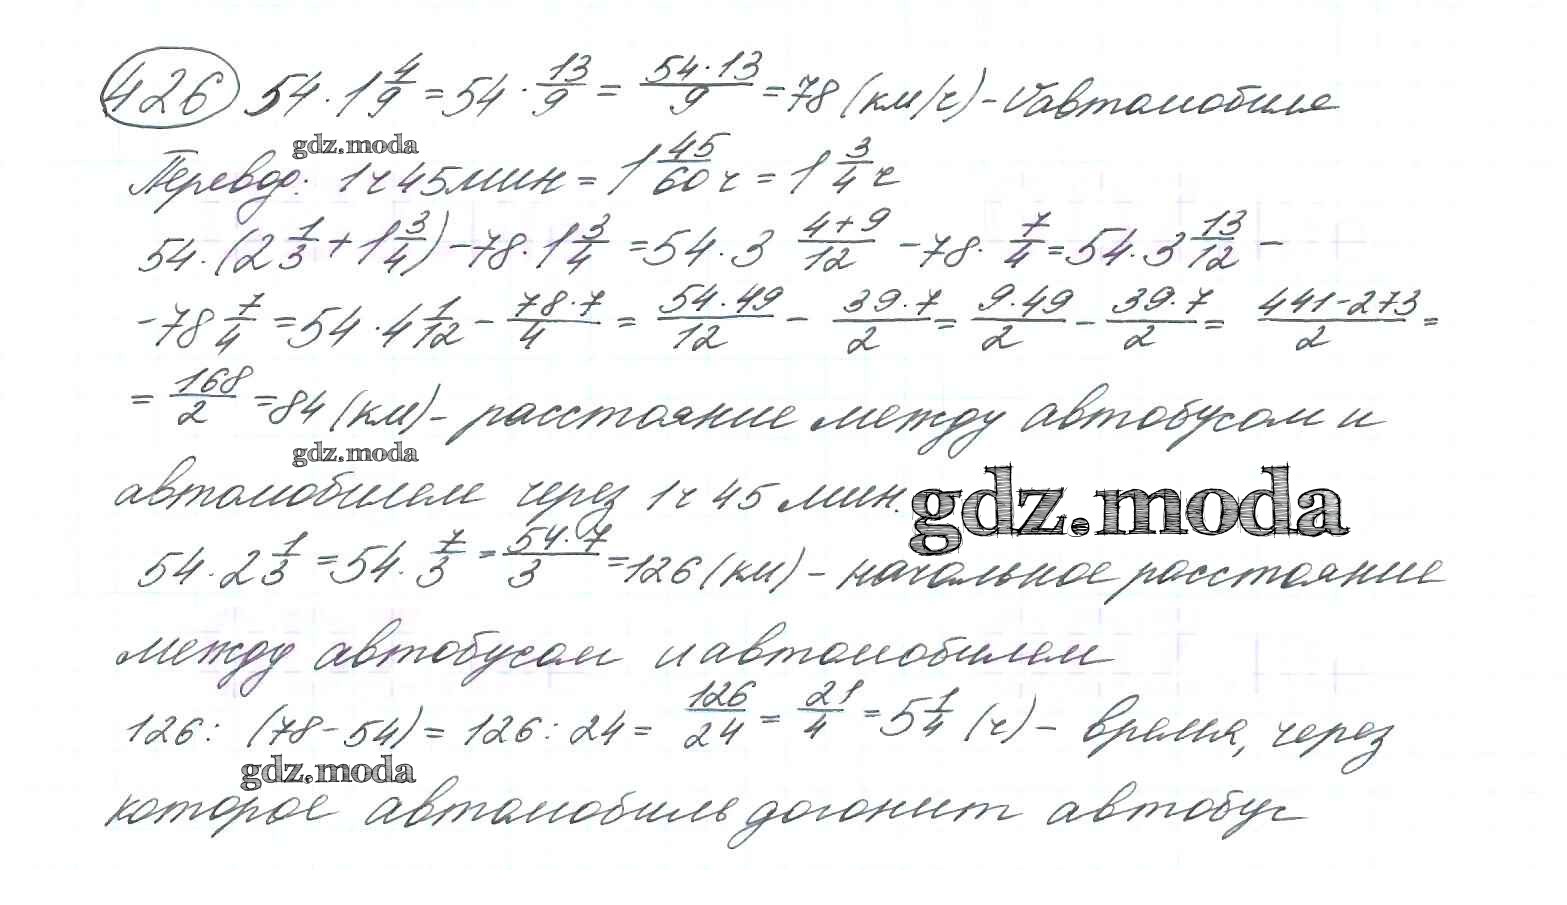 426 54·1 4/9 = 54 · 13/9 = 54·13/9 = 78 (км/ч) - Vавтомобиля
gdz.moda
Перевод: 1ч 45мин = 1 45/60 ч = 1 3/4 ч
54·(2 1/3 + 1 3/4) - 78·1 3/4 = 54·3 4+9/12 - 78· 7/4 = 54·3 13/12 -
- 78 7/4 = 54·4 1/12 - 78·7/4 = 54·49/12 - 39·7/2 = 9·49/2 - 39·7/2 = 441-273/2 =
= 168/2 = 84 (км) - расстояние между автобусом и
gdz.moda
автомобилем через 1ч 45 мин.
gdz.moda
54·2 1/3 = 54· 7/3 = 54·7/3 = 126 (км) - начальное расстояние
между автобусом и автомобилем
126 : (78-54) = 126 : 24 = 126/24 = 21/4 = 5 1/4 (ч) - время, через
gdz.moda
которое автомобиль догонит автобус